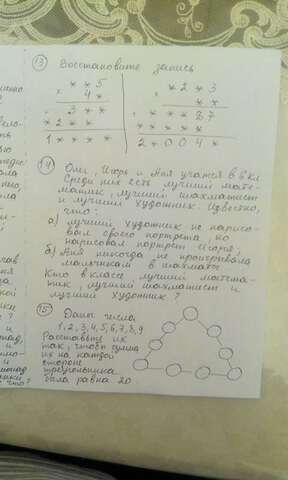 13 Восстановите запись
* * 5
4 *
3 * *
* 2 * *
1 * * * *
* 2 * 3
* *
* * * 8 7
* * * * *
2 * 0 0 4 *
14 Оля, Игорь и Аня учатся в 6 кл.
Среди них есть лучший мате-
матик, лучший шахматист
и лучший художник. Известно,
что:
а) лучший художник не нарисо-
вал своего портрета, но
нарисовал портрет Игоря;
б) Аня никогда не проигрывала
мальчикам в шахматы.
Кто в классе лучший матема-
тик, лучший шахматист и
лучший художник?
15 Даны числа
1, 2, 3, 4, 5, 6, 7, 8, 9
Расставьте их
так, чтобы сумма
их на каждой
стороне
треугольника
была равна 20